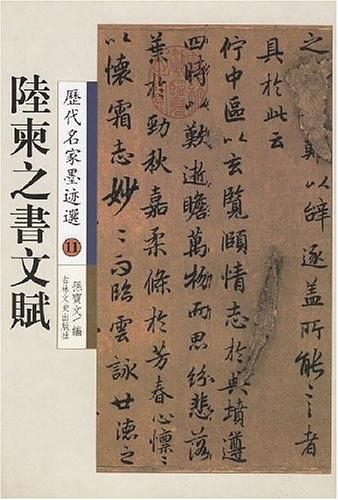 陸柬之書文賦
歷代名家墨迹選
11
孫寶文/編
吉林文史出版社
之難以辭逐盖所能言者
具於此云
佇中區以玄覽頤情志於典墳遵
四時以歎逝瞻萬物而思紛悲落
葉於勁秋嘉柔條於芳春心懍〻
以懷霜志妙〻而臨雲詠世德之